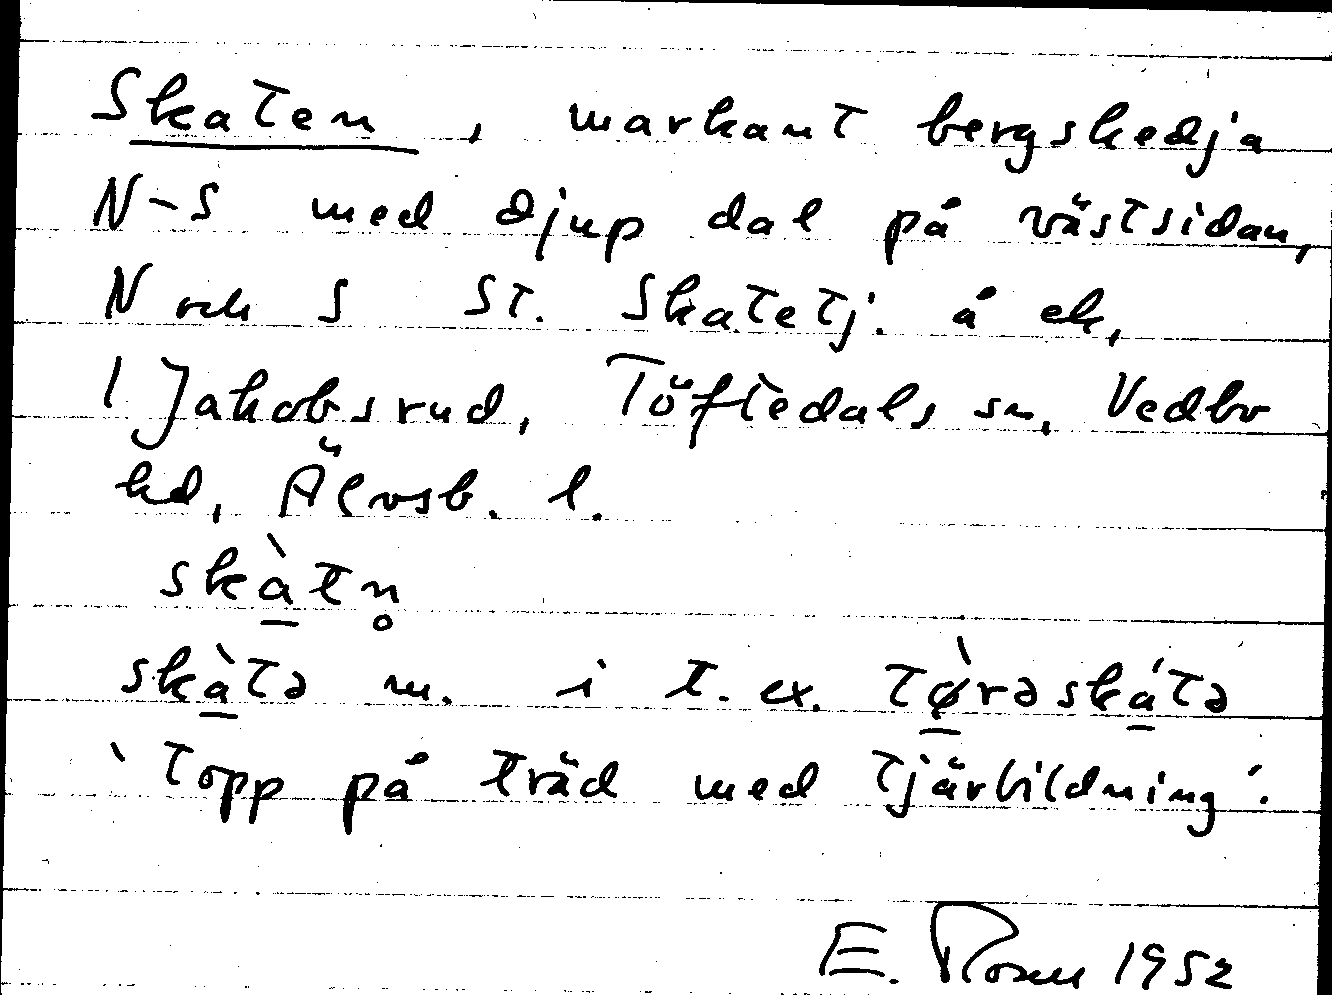 Skaten, markant bergskedja
N-S med djup dal på västsidan,
N och S St. Skatetj. å ek,
l Jakobsrud, Töftedals sn, Vedbo
hd, Älvsb. l.
skàtn̥
skàtə m. i t. ex. tø̀rəskátə
`topp på träd med tjärbildning´.
E. Rosen 1952